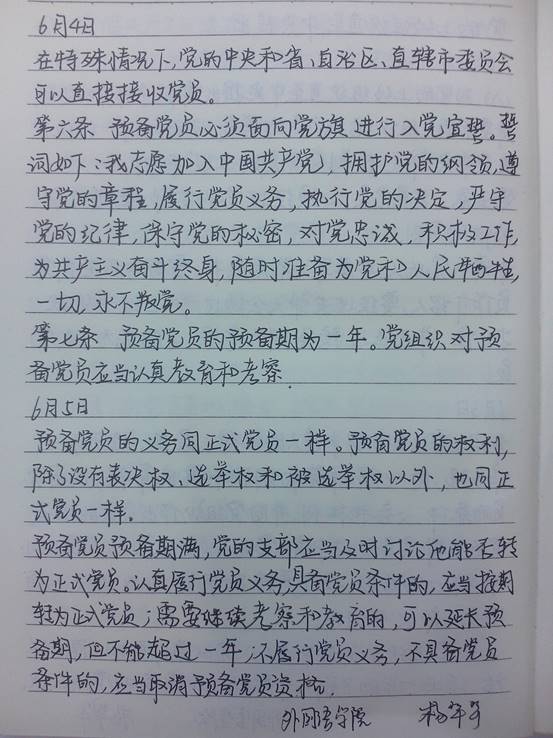 6月4日
在特殊情况下,党的中央和省、自治区、直辖市委员会
可以直接接收党员。
第六条 预备党员必须面向党旗进行入党宣誓。誓
词如下:我志愿加入中国共产党,拥护党的纲领,遵
守党的章程,履行党员义务,执行党的决定,严守
党的纪律,保守党的秘密,对党忠诚,积极工作,
为共产主义奋斗终身,随时准备为党和人民牺牲
一切,永不叛党。
第七条 预备党员的预备期为一年。党组织对预
备党员应当认真教育和考察.
6月5日
预备党员的义务同正式党员一样。预备党员的权利,
除了没有表决权、选举权和被选举权以外,也同正
式党员一样.
预备党员预备期满,党的支部应当及时讨论他能否转
为正式党员。认真履行党员义务,具备党员条件的,应当按期
转为正式党员;需要继续考察和教育的,可以延长预
备期,但不能超过一年;不履行党员义务,不具备党员
条件的,应当取消预备党员资格.
外国语学院